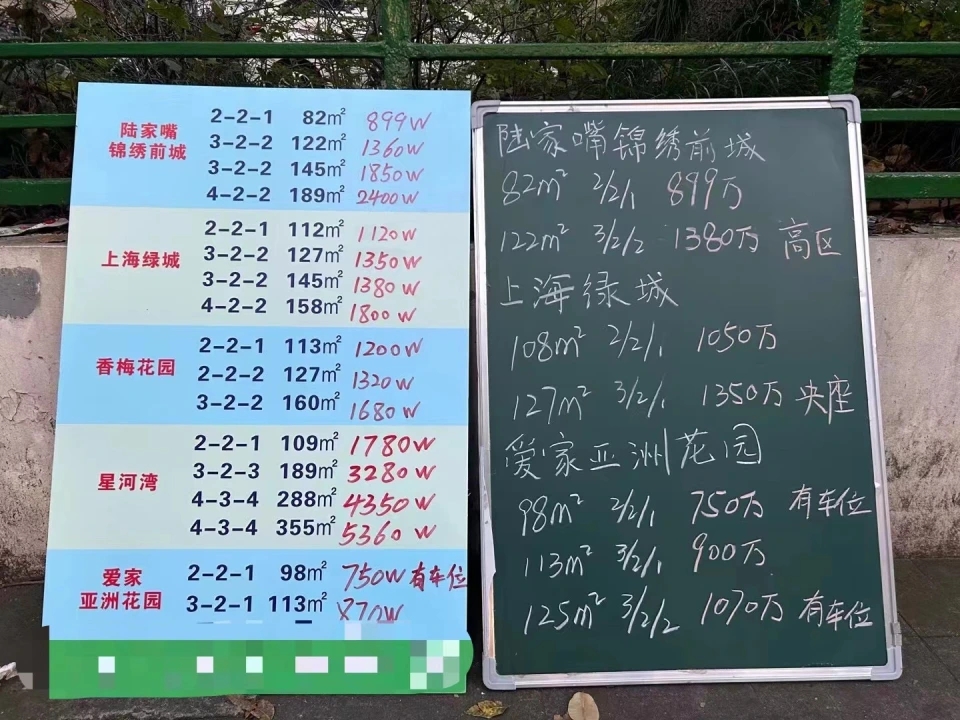 陆家嘴
锦绣前城
2-2-1 82㎡ 899W
3-2-2 122㎡ 1360W
3-2-2 145㎡ 1850W
4-2-2 189㎡ 2400W
上海绿城
2-2-1 112㎡ 1120W
3-2-2 127㎡ 1350W
3-2-2 145㎡ 1380W
4-2-2 158㎡ 1800W
香梅花园
2-2-1 113㎡ 1200W
2-2-2 127㎡ 1320W
3-2-2 160㎡ 1680W
星河湾
2-2-1 109㎡ 1780W
3-2-3 189㎡ 3280W
4-3-4 288㎡ 4350W
4-3-4 355㎡ 5360W
爱家
亚洲花园
2-2-1 98㎡ 750W 有车位
3-2-1 113㎡ 870W
陆家嘴锦绣前城
82m² 2/2/1 899万
122m² 3/2/2 1380万 高区
上海绿城
108m² 2/2/1 1050万
127m² 3/2/1 1350万 央座
爱家亚洲花园
98m² 2/2/1 750万 有车位
113m² 3/2/1 900万
125m² 3/2/2 1070万 有车位